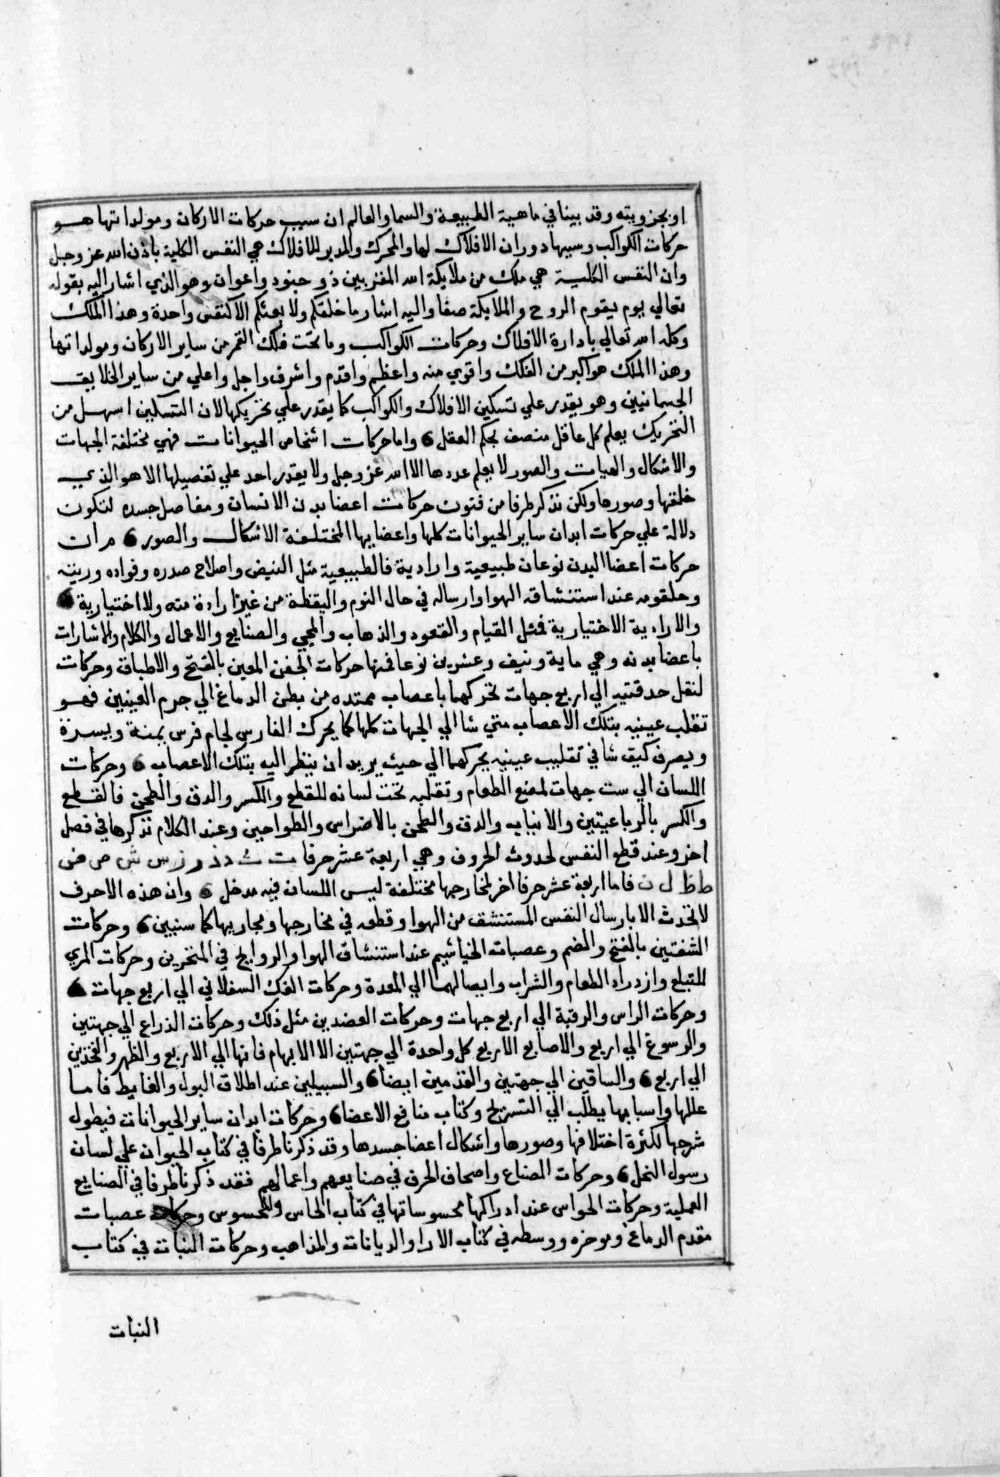 او بجزويته وقد بينا في ماهية الطبيعة والسما والعالم ان سبب حركات الاركان ومولداتها هو
حركات الكواكب وسببها دوران الافلاك لها والمحرك والمدير للافلاك هي النفس الكلية باذن الله عز وجل
وان النفس الكلية هي ملك من ملايكة الله المقربين ذو جنود واعوان وهو الذي اشار اليه بقوله
تعالي يوم يقوم الروح والملايكة صفا واليه اشار ما خلقكم ولا بعثكم الا كنفس واحدة وهذا الملك
وكله الله تعالي بادارة الافلاك وحركات الكواكب وما تحت فلك القمر من ساير الاركان ومولداتها
وهذا الملك هو اكبر من الفلك واقوي منه واعظم واقدم واشرف واجل واعلي من ساير الخلايق
الجسمانيين وهو يقدر علي تسكين الافلاك والكواكب كما يقدر علي تحريكها لان التسكين اسهل من
التحريك يعلم كل عاقل منصف بحكم العقل 6 واما حركات اشخاص الحيوانات فهي مختلفة الجهات
والاشكال والهيات والصور لا يعلم عددها الا الله عز وجل ولا يقدر احد علي تفصيلها الا هو الذي
خلقها وصورها ولكن نذكر طرفا من فنون حركات اعضا بدن الانسان ومفاصل جسده لتكون
دلالة علي حركات ابدان ساير الحيوانات كلها واعضايها المختلفة الاشكال والصور 6 م ان
حركات اعضا البدن نوعان طبيعية وارادية فالطبيعية مثل النبض واصلاح صدره وفواده وريته
وحلقومه عند استنشاقه الهوا وارساله في حال النوم واليقظة من غير ارادة منه ولا اختيارية 6
والارادية الاختيارية فمثل القيام والقعود والذهاب والمجي والصنايع والاعمال والكلام والاشارات
باعضا بدنه وهي ماية ونيف وعشرون نوعا فمنها حركات الجفن المعين بالفتح والاطباق وحركات
لنقل حدقتيه الي اربع جهات تحركهما باعصاب ممتده من بطن الدماغ الي جرم العينين فهو
تقلب عينيه بتلك الاعصاب متي شا الي الجهات كلها كما يحرك الفارس لجام فرس يمنة ويسرة
ويصرف كيف شا في تقليب عينيه يحركهما الي حيث يريد ان ينظر اليه بتلك الاعصاب 6 وحركات
اللسان الي ست جهات لمضغ الطعام وتقليبه تحت لسانه للقطع والكسر والدق والطحن فالقطع
والكسر بالرباعيتين والانياب والدق والطحن بالاضراس والطواحين وعند الكلام نذكرها في فصل
اخر وعند قطع النفس لحدوث الحروف وهي اربعة عشر حرفا ت ث د ذ ر ز س ش ص ض
ط ظ ل ن فاما اربعة عشر حرفا اخر لمخارجها مختلفة ليس اللسان فيه مدخل 6 وان هذه الاحرف
لا تحدث الا بارسال النفس المستنشق من الهوا وقطعه في مخارجها ومجاريها كما سنبين 6 وحركات
الشفتين بالفتح والضم وعصبات الخياشيم عند استنشاق الهوا والروايح في المنخرين وحركات المري
للتبلع وازدراد الطعام والشراب وايصالهما الي المعدة وحركات الفك السفلاني الي اربع جهات 6
وحركات الراس والرقبة الي اربع جهات وحركات العضدين مثل ذلك وحركات الذراع الي جهتين
والرسوغ الي اربع والاصابع الاربع كل واحدة الي جهتين الا الابهام فانها الي الاربع والظهر والفخذين
الي اربع 6 والساقين الي جهتين والقدمين ايضا 6 والسبيلين عند اطلاق البول والغايط فاما
عللها واسبابها يطلب الي التشريح وكتاب منافع الاعضا 6 وحركات ابدان ساير الحيوانات فيطول
شرحها لكثرة اختلافها وصورها واشكال اعضا جسدها وقد ذكرنا طرفا في كتاب الحيوان علي لسان
رسول النحل 6 وحركات الصناع واصحاف الحرف في صنايعهم واعمالهم فقد ذكرنا طرفا في الصنايع
العملية وحركات الحواس عند ادراكها محسوساتها في كتاب الحاس والمحسوس وحركات عصبات
مقدم الدماغ وموخره ووسطه في كتاب الارا والديانات والمذاهب وحركات النبات في كتاب
النبات